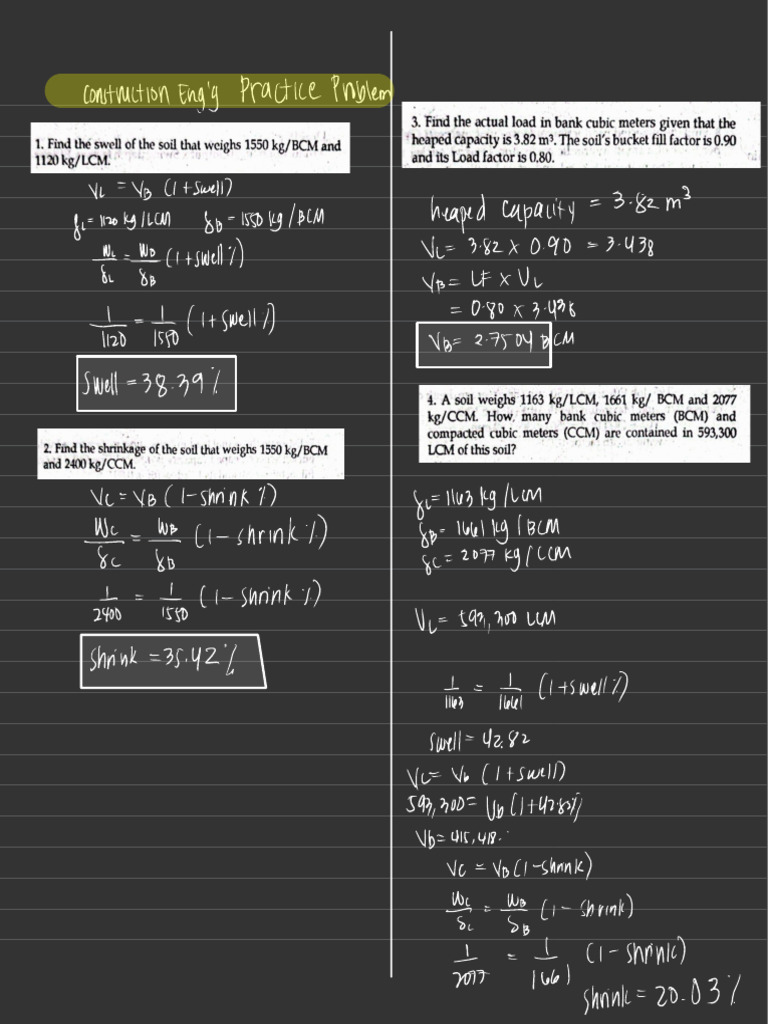 Construction Eng'g Practice Problem
1. Find the swell of the soil that weighs 1550 kg/BCM and
1120 kg/LCM.
VL = VB (1 + swell)
γL = 1120 kg/LCM γB = 1550 kg/BCM
WL/γL = WB/γB (1 + swell %)
1/1120 = 1/1550 (1 + swell %)
Swell = 38.39 %
2. Find the shrinkage of the soil that weighs 1550 kg/BCM
and 2400 kg/CCM.
VC = VB (1 - shrink %)
WC/γC = WB/γB (1 - shrink %)
1/2400 = 1/1550 (1 - shrink %)
Shrink = 35.42 %
3. Find the actual load in bank cubic meters given that the
heaped capacity is 3.82 m³. The soil's bucket fill factor is 0.90
and its Load factor is 0.80.
heaped capacity = 3.82 m³
VL = 3.82 x 0.90 = 3.438
VB = LF x VL
= 0.80 x 3.438
VB = 2.7504 BCM
4. A soil weighs 1163 kg/LCM, 1661 kg/ BCM and 2077
kg/CCM. How, many bank cubic meters (BCM) and
compacted cubic meters (CCM) are contained in 593,300
LCM of this soil?
γL = 1163 kg/LCM
γB = 1661 kg/BCM
γC = 2077 kg/CCM
VL = 593,300 LCM
1/1163 = 1/1661 (1 + swell %)
Swell = 42.82
VL = Vb (1 + swell)
593,300 = Ub (1 + 42.82%)
Vb = 415,418.
VC = VB (1 - shrink)
WC/γC = WB/γB (1 - shrink)
1/2077 = 1/1661 (1 - shrink)
Shrink = 20.03 %